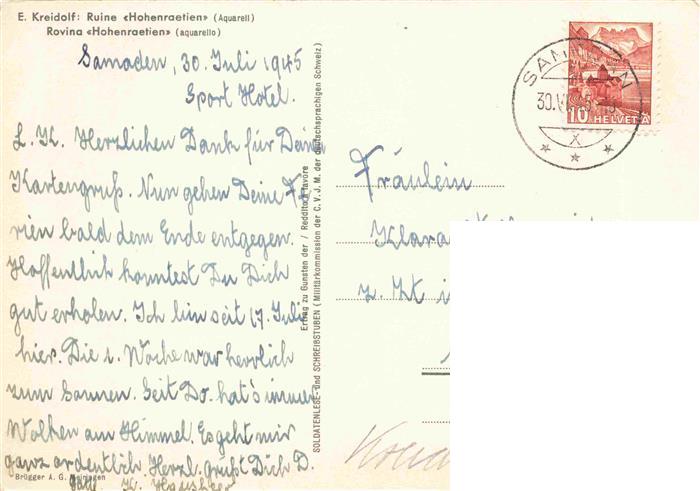 E. Kreidolf: Ruine «Hohenraetien» (Aquarell)
Rovina «Hohenraetien» (aquarello)
Samaden, 30. Juli 1945
Sport Hotel.
L. K. Herzlichen Dank für Deinen
Kartengruß. Nun gehen Deine Fe-
rien bald dem Ende entgegen.
Hoffentlich konntest Du Dich
gut erholen. Ich bin seit 17. Juli
hier. Die 1. Woche war herrlich
zum Sonnen. Seit Do. hat's immer
Wolken am Himmel. Es geht mir
ganz ordentlich. Herzl. grüßt Dich D.
Brügger A. G. Meiringen
Ertrag zu Gunsten der / Reddito a favore
SOLDATENLESE- und SCHREIBSTUBEN (Militärkommission der C. V. J. M. der deutschsprachigen Schweiz)
SAMADEN
30.VII
10 HELVETIA
X
Fräulein
Klara
z. Zt